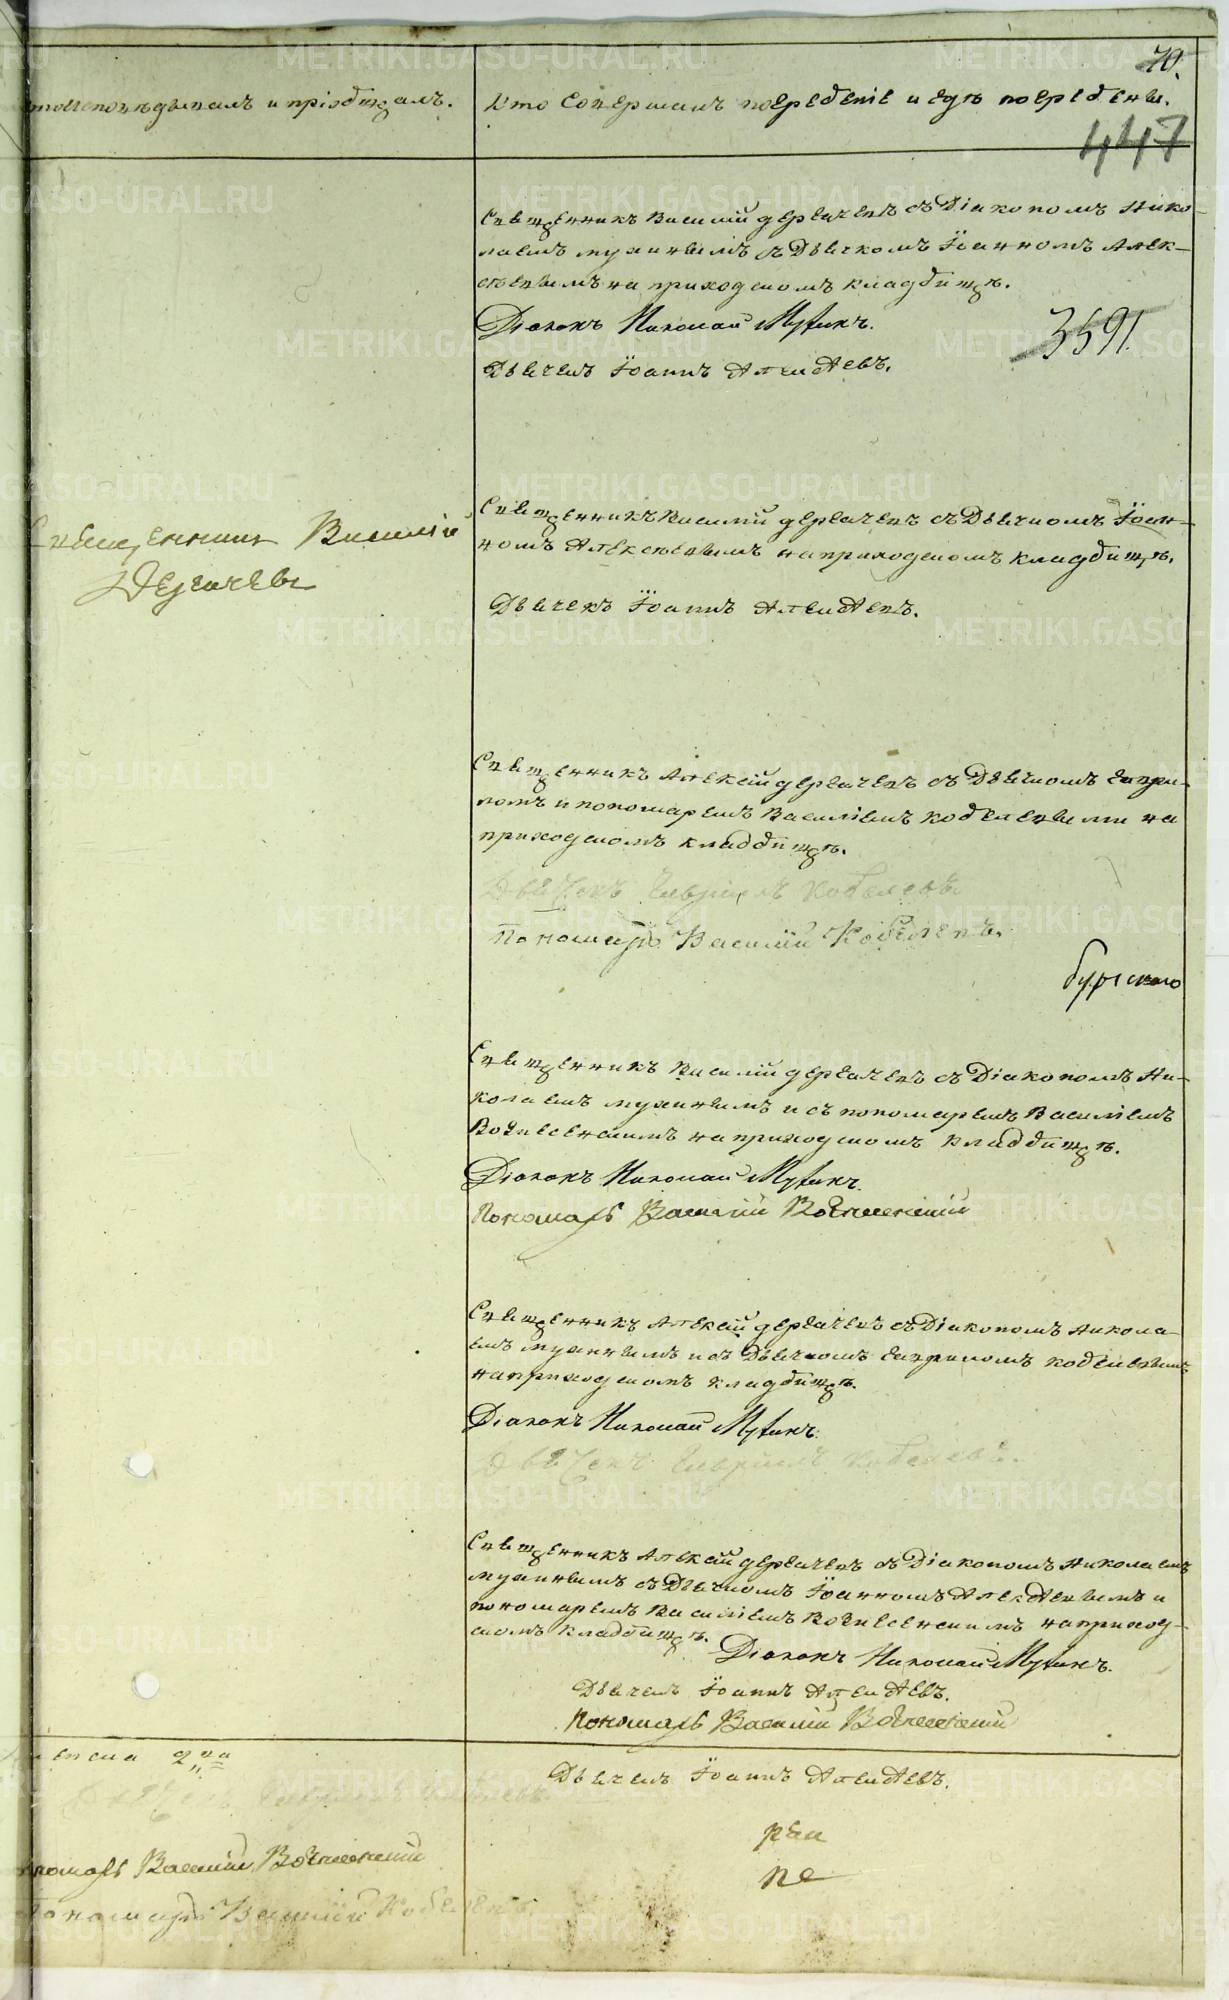 70.
кто исповѣдывалъ и пріобщалъ.
Кто совершалъ погребеніе и гдѣ погребены.
447
Священникъ Василій Дерячевъ съ Діакономъ Нико-
лаемъ Мухинымъ съ Дьячкомъ Іоанномъ Алек-
сѣевымъ на приходскомъ кладбищѣ.
Діаконъ Николай Мухинъ.
3591.
Дьячекъ Іоаннъ Алексѣевъ.
Священникъ Василій
Священникъ Василій Дерячевъ съ Дьячкомъ Іоан-
номъ Алексѣевымъ на приходскомъ кладбищѣ.
Дьячекъ Іоаннъ Алексѣевъ.
Священникъ Алексѣй Дерячевъ съ Дьячкомъ Гаври-
ломъ и пономаремъ Василіемъ Кобелевыми на
приходскомъ кладбищѣ.
Дьячекъ Гавріилъ Кобелевъ
Пономарь Василій Кобелевъ.
Священникъ Василій Дерячевъ съ Діакономъ Ни-
колаемъ Мухинымъ и съ пономаремъ Василіемъ
Вознесенскимъ на приходскомъ кладбищѣ.
Діаконъ Николай Мухинъ.
Пономарь Василій Вознесенскій
Священникъ Алексѣй Дерячевъ съ Діакономъ Никола-
емъ Мухинымъ и съ Дьячкомъ Гавриломъ Кобелевымъ
на приходскомъ кладбищѣ.
Діаконъ Николай Мухинъ.
Дьячекъ Гавріилъ Кобелевъ.
Священникъ Алексѣй Дерячевъ съ Діакономъ Николаемъ
Мухинымъ съ Дьячкомъ Іоанномъ Алексѣевымъ и
пономаремъ Василіемъ Вознесенскимъ на приход-
скомъ кладбищѣ.
Діаконъ Николай Мухинъ.
Дьячекъ Іоаннъ Алексѣевъ.
Пономарь Василій Вознесенскій
Дьячекъ Іоаннъ Алексѣевъ.
Пономарь Василій Вознесенскій
Пономарь Василій Кобелевъ.
METRIKI.GASO-URAL.RU